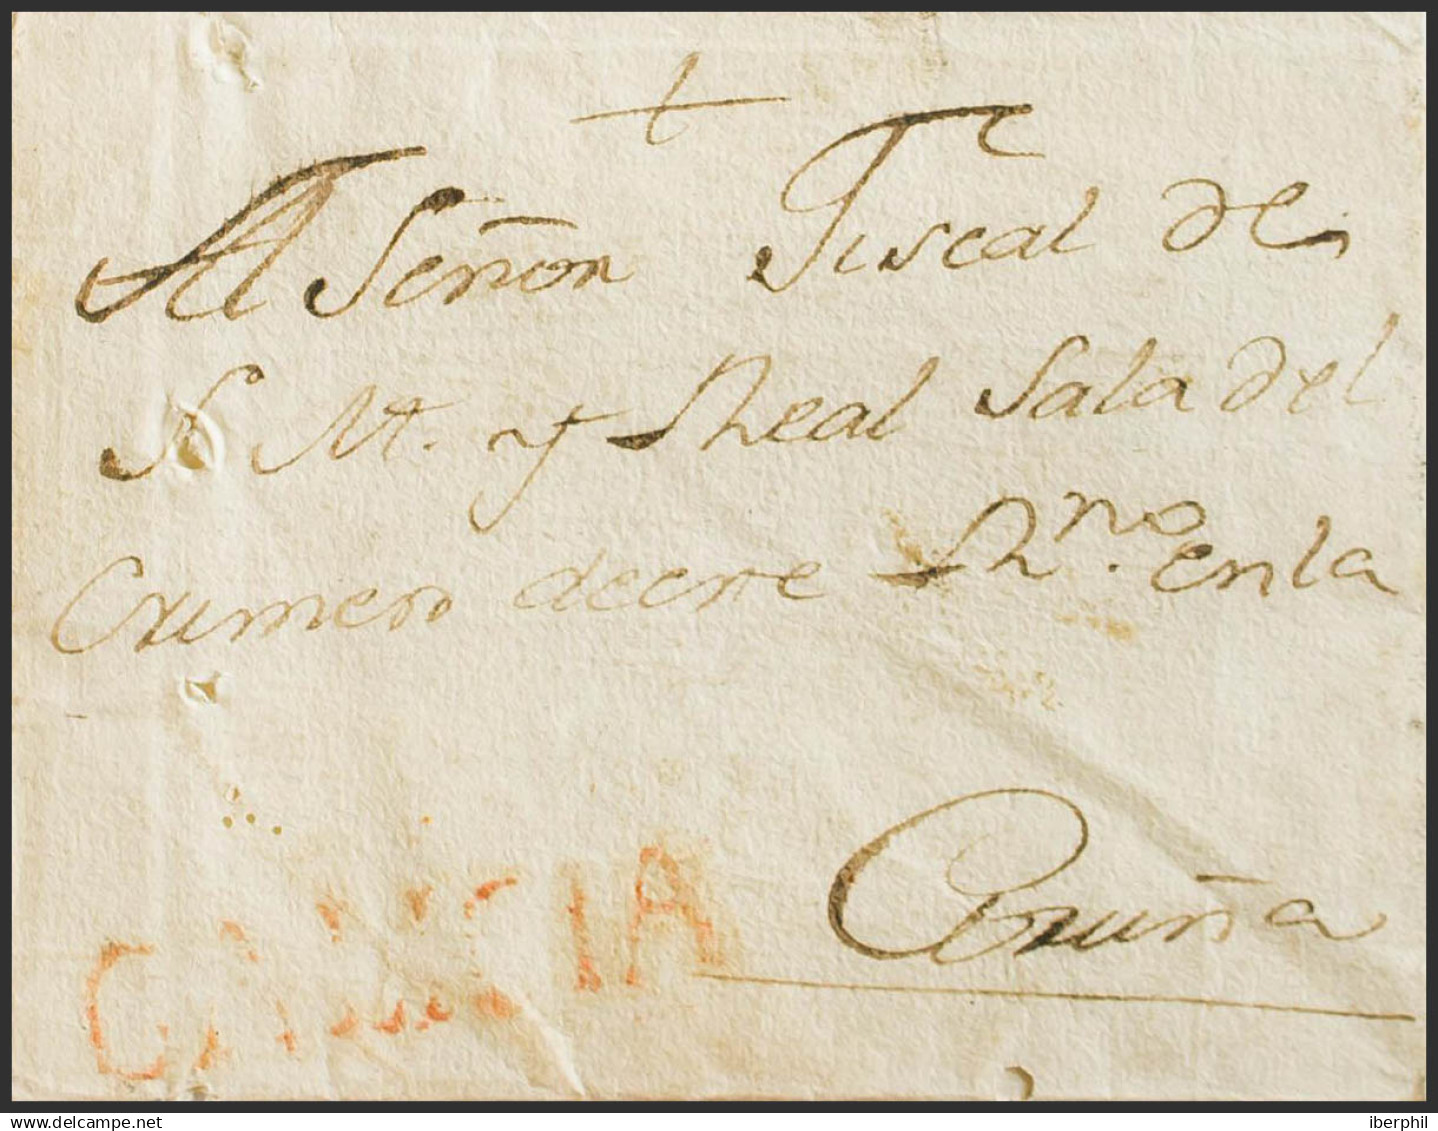 +
Al Señor Fiscal de
S. M. y Real Sala del
Crimen de este Rno. en la
Coruña
GALICIA
delcampe.net
iberphil